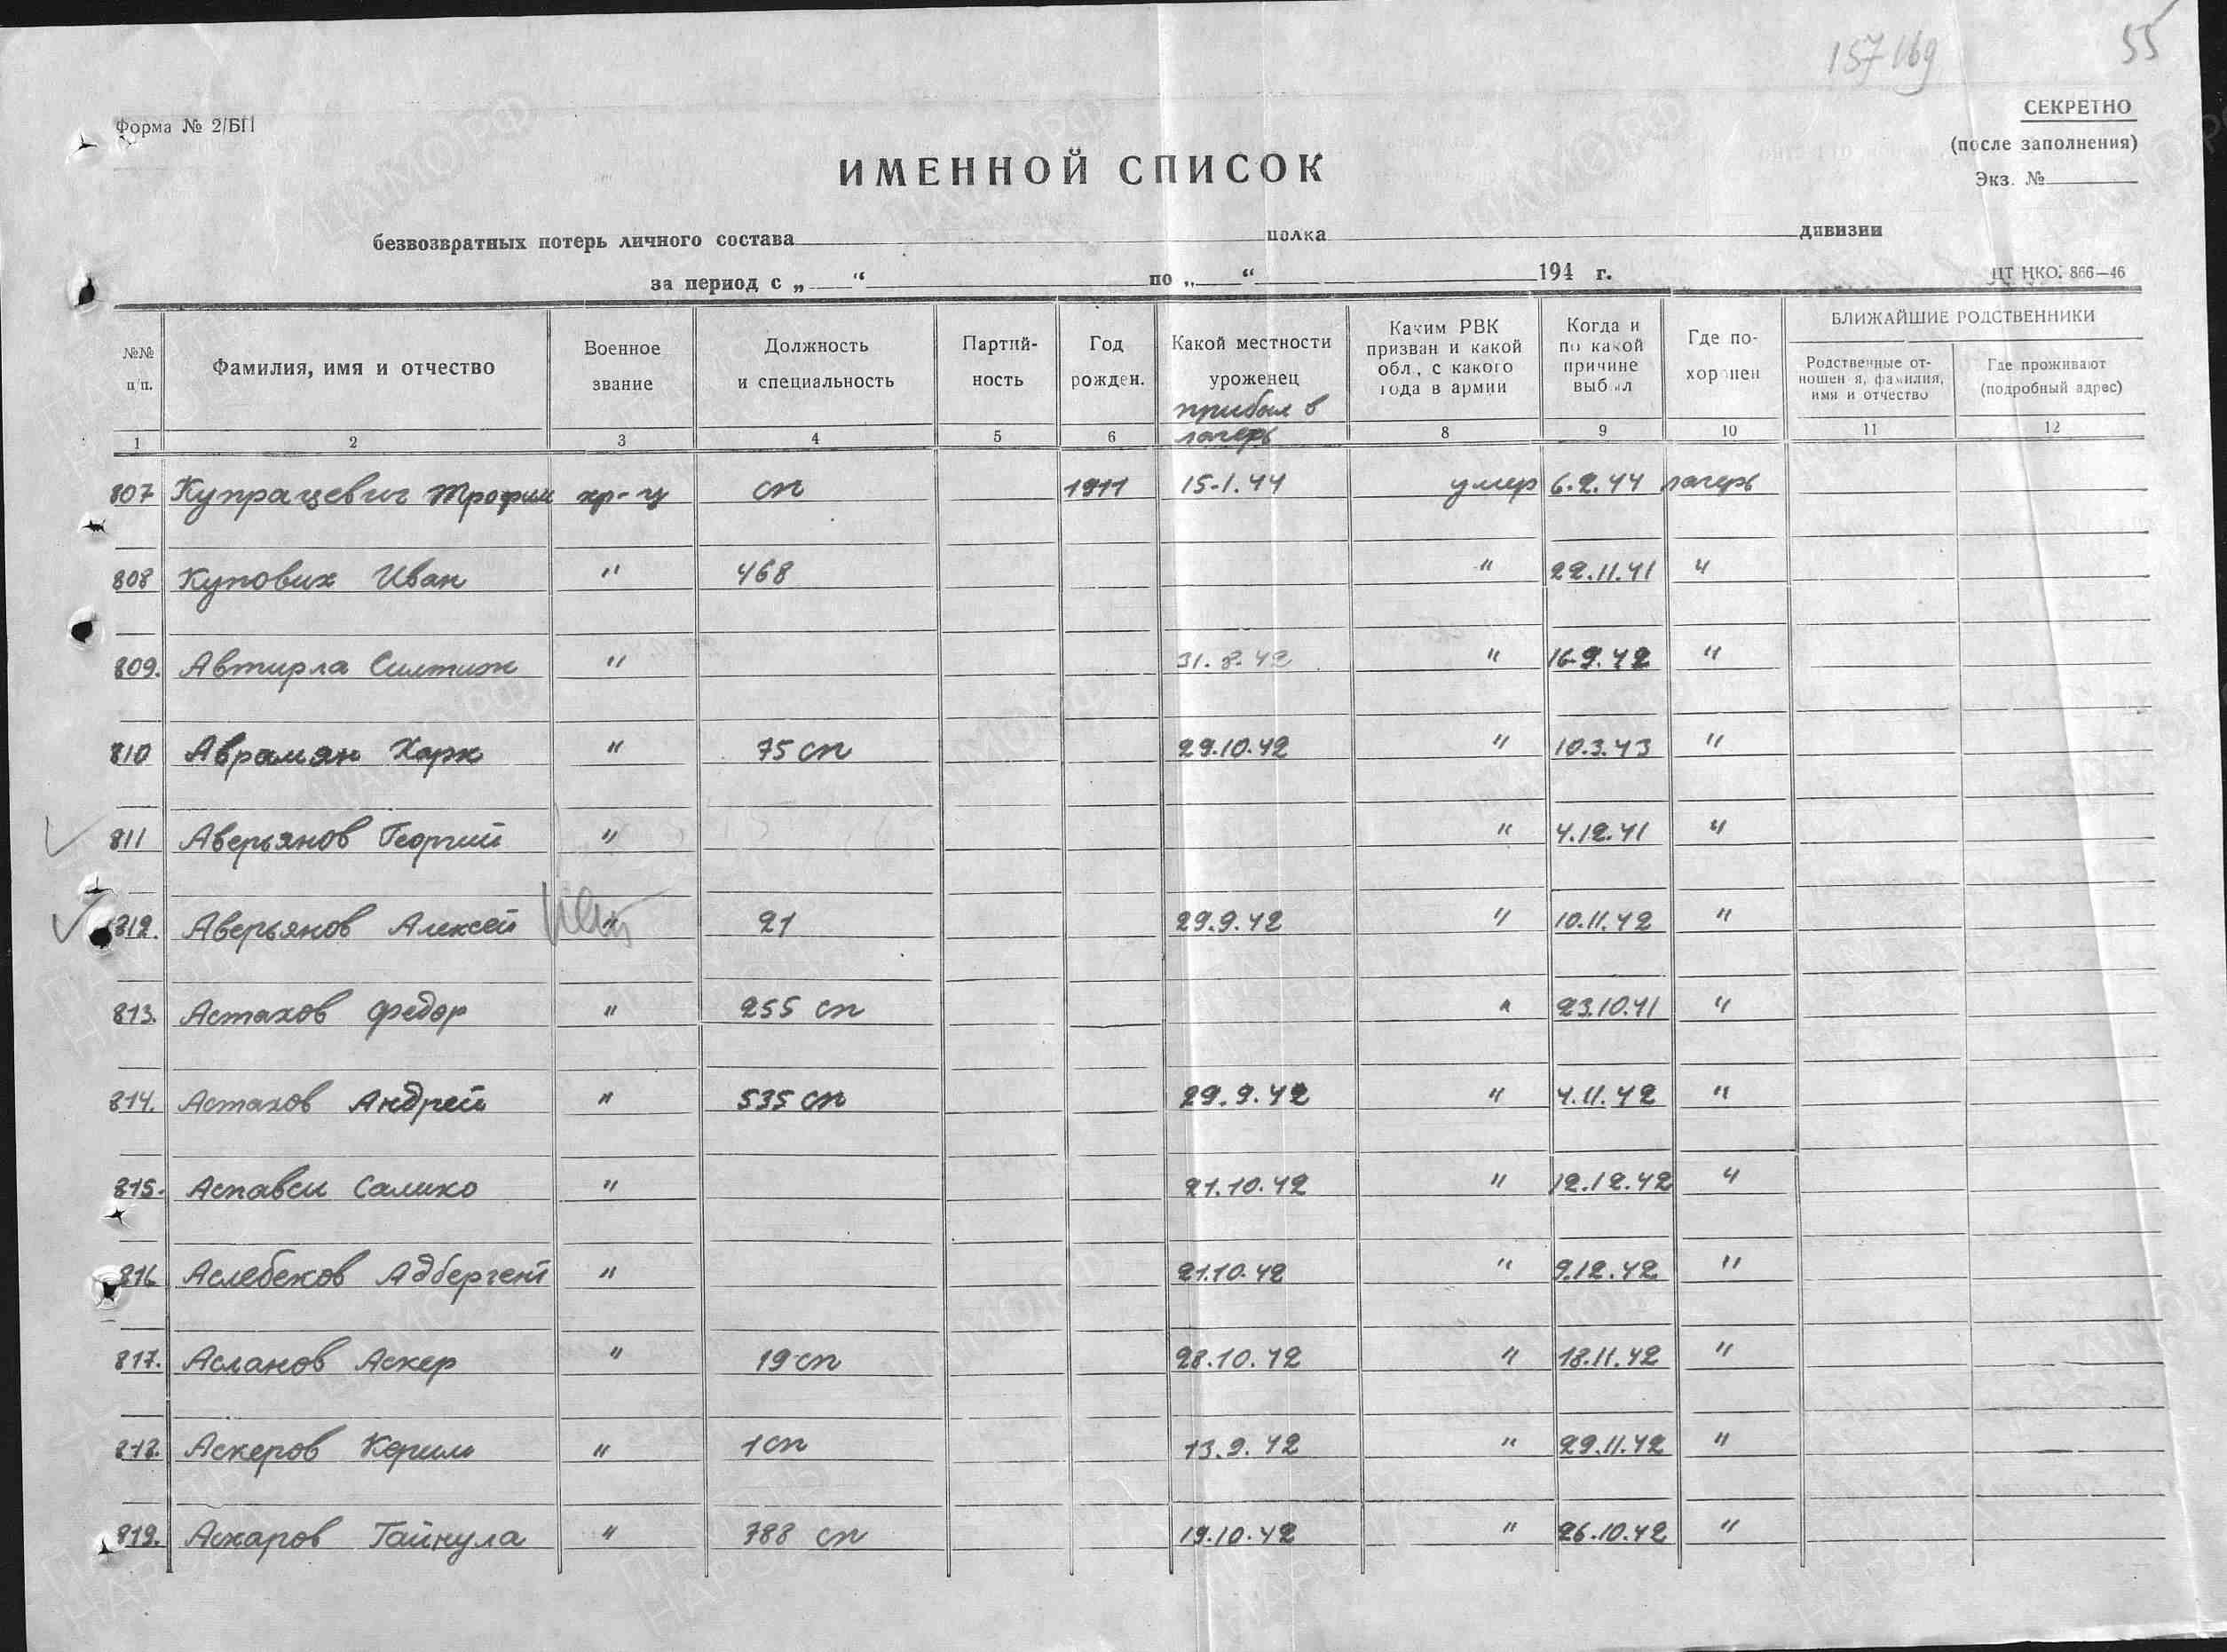 157 169 55
Форма № 2/БП
СЕКРЕТНО
(после заполнения)
Экз. №
ИМЕННОЙ СПИСОК
безвозвратных потерь личного состава полка дивизии
за период с „ “ по „ “ 194 г.
ЦТ НКО. 866—46
№№ п/п. Фамилия, имя и отчество Военное звание Должность и специальность Партий- ность Год рожден. Какой местности уроженец прибыл в лагерь Каким РВК призван и какой обл., с какого года в армии Когда и по какой причине выбыл Где по- хоронен БЛИЖАЙШИЕ РОДСТВЕННИКИ Родственные от- ношения, фамилия, имя и отчество Где проживают (подробный адрес)
1 2 3 4 5 6 8 9 10 11 12
807 Купрацевич Трофим кр-ц сп 1911 15-1.44 умер 6.2.44 лагерь
808 Купових Иван " 468 " 22.11.41 "
809. Автирла Силтин " 31.8.42 " 16.9.42 "
810 Аврамян Харк " 75 сп 29.10.42 " 10.3.43 "
811 Аверьянов Георгий " " 4.12.41 "
812. Аверьянов Алексей " 21 29.9.42 " 10.11.42 "
813. Астахов Федор " 255 сп " 23.10.41 "
814. Астахов Андрей " 535 сп 29.9.42 " 4.11.42 "
815. Аспавси Салико " 21.10.42 " 12.12.42 "
816 Аслебеков Адберген " 21.10.42 " 9.12.42 "
817. Асланов Аскер " 19 сп 28.10.42 " 18.11.42 "
818. Аскеров Керим " 1 сп 13.9.42 " 29.11.42 "
819. Асхаров Гайнула " 788 сп 19.10.42 " 26.10.42 "